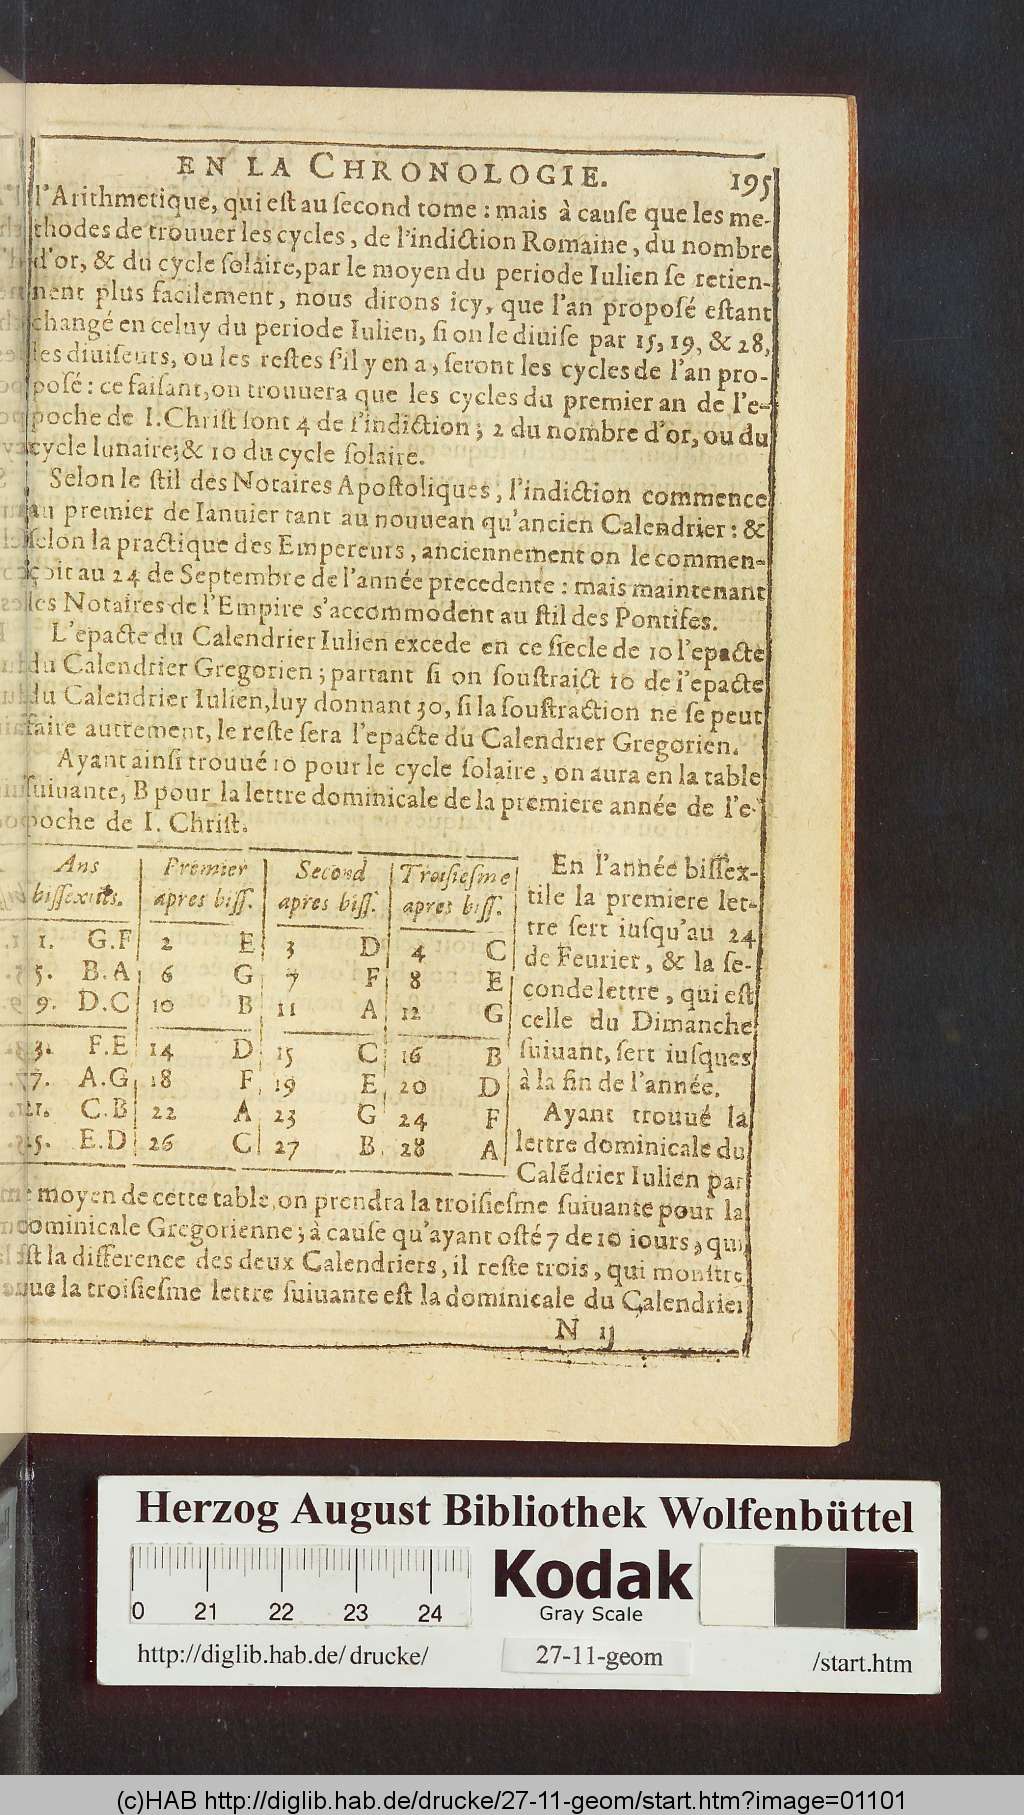 EN LA CHRONOLOGIE. 195
l'Arithmetique, qui eſt au ſecond tome : mais à cauſe que les me-
thodes de trouuer les cycles, de l'indiction Romaine, du nombre
d'or, & du cycle ſolaire, par le moyen du periode Iulien ſe retien-
nent plus facilement, nous dirons icy, que l'an propoſé eſtant
changé en celuy du periode Iulien, ſi on le diuiſe par 15, 19, & 28,
les diuiſeurs, ou les reſtes s'il y en a, ſeront les cycles de l'an pro-
poſé : ce faiſant, on trouuera que les cycles du premier an de l'e-
poche de I. Chriſt ſont 4 de l'indiction ; 2 du nombre d'or, ou du
cycle lunaire; & 10 du cycle ſolaire.
Selon le ſtil des Notaires Apoſtoliques, l'indiction commence
au premier de Ianuier tant au nouuean qu'ancien Calendrier : &
ſelon la practique des Empereurs, anciennement on le commen-
çoit au 24 de Septembre de l'année precedente : mais maintenant
les Notaires de l'Empire s'accommodent au ſtil des Pontifes.
L'epacte du Calendrier Iulien excede en ce ſiecle de 10 l'epacte
du Calendrier Gregorien ; partant ſi on ſouſtraict 10 de l'epacte
du Calendrier Iulien, luy donnant 30, ſi la ſouſtraction ne ſe peut
faire autrement, le reſte ſera l'epacte du Calendrier Gregorien.
Ayant ainſi trouué 10 pour le cycle ſolaire, on aura en la table
ſuiuante, B pour la lettre dominicale de la premiere année de l'e-
poche de I. Chriſt.
Ans | Premier | Second | Troiſieſme
biſſextils. | apres biſſ. | apres biſſ. | apres biſſ.
1. G.F | 2 E | 3 D | 4 C
5. B.A | 6 G | 7 F | 8 E
9. D.C | 10 B | 11 A | 12 G
3. F.E | 14 D | 15 C | 16 B
7. A.G | 18 F | 19 E | 20 D
21. C.B | 22 A | 23 G | 24 F
5. E.D | 26 C | 27 B | 28 A
En l'année biſſex-
tile la premiere let-
tre ſert iuſqu'au 24
de Feurier, & la ſe-
conde lettre, qui eſt
celle du Dimanche
ſuiuant, ſert iuſques
à la fin de l'année.
Ayant trouué la
lettre dominicale du
Calẽdrier Iulien par
moyen de cette table, on prendra la troiſieſme ſuiuante pour la
dominicale Gregorienne ; à cauſe qu'ayant oſté 7 de 10 iours, qui
eſt la difference des deux Calendriers, il reſte trois, qui monſtre
que la troiſieſme lettre ſuiuante eſt la dominicale du Calendrier
N ij
Herzog August Bibliothek Wolfenbüttel
0 21 22 23 24
Kodak
Gray Scale
http://diglib.hab.de/ drucke/ 27-11-geom /start.htm
(c)HAB http://diglib.hab.de/drucke/27-11-geom/start.htm?image=01101